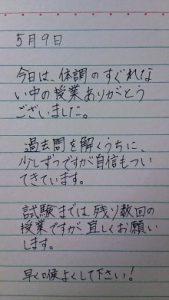 5月9日
今日は、体調のすぐれな
い中の授業ありがとう
ございました。
過去問を解くうちに、
少しずつですが自信もつい
てきています。
試験までは残り数回の
授業ですが宜しくお願い
します。
早く喉よくして下さい!